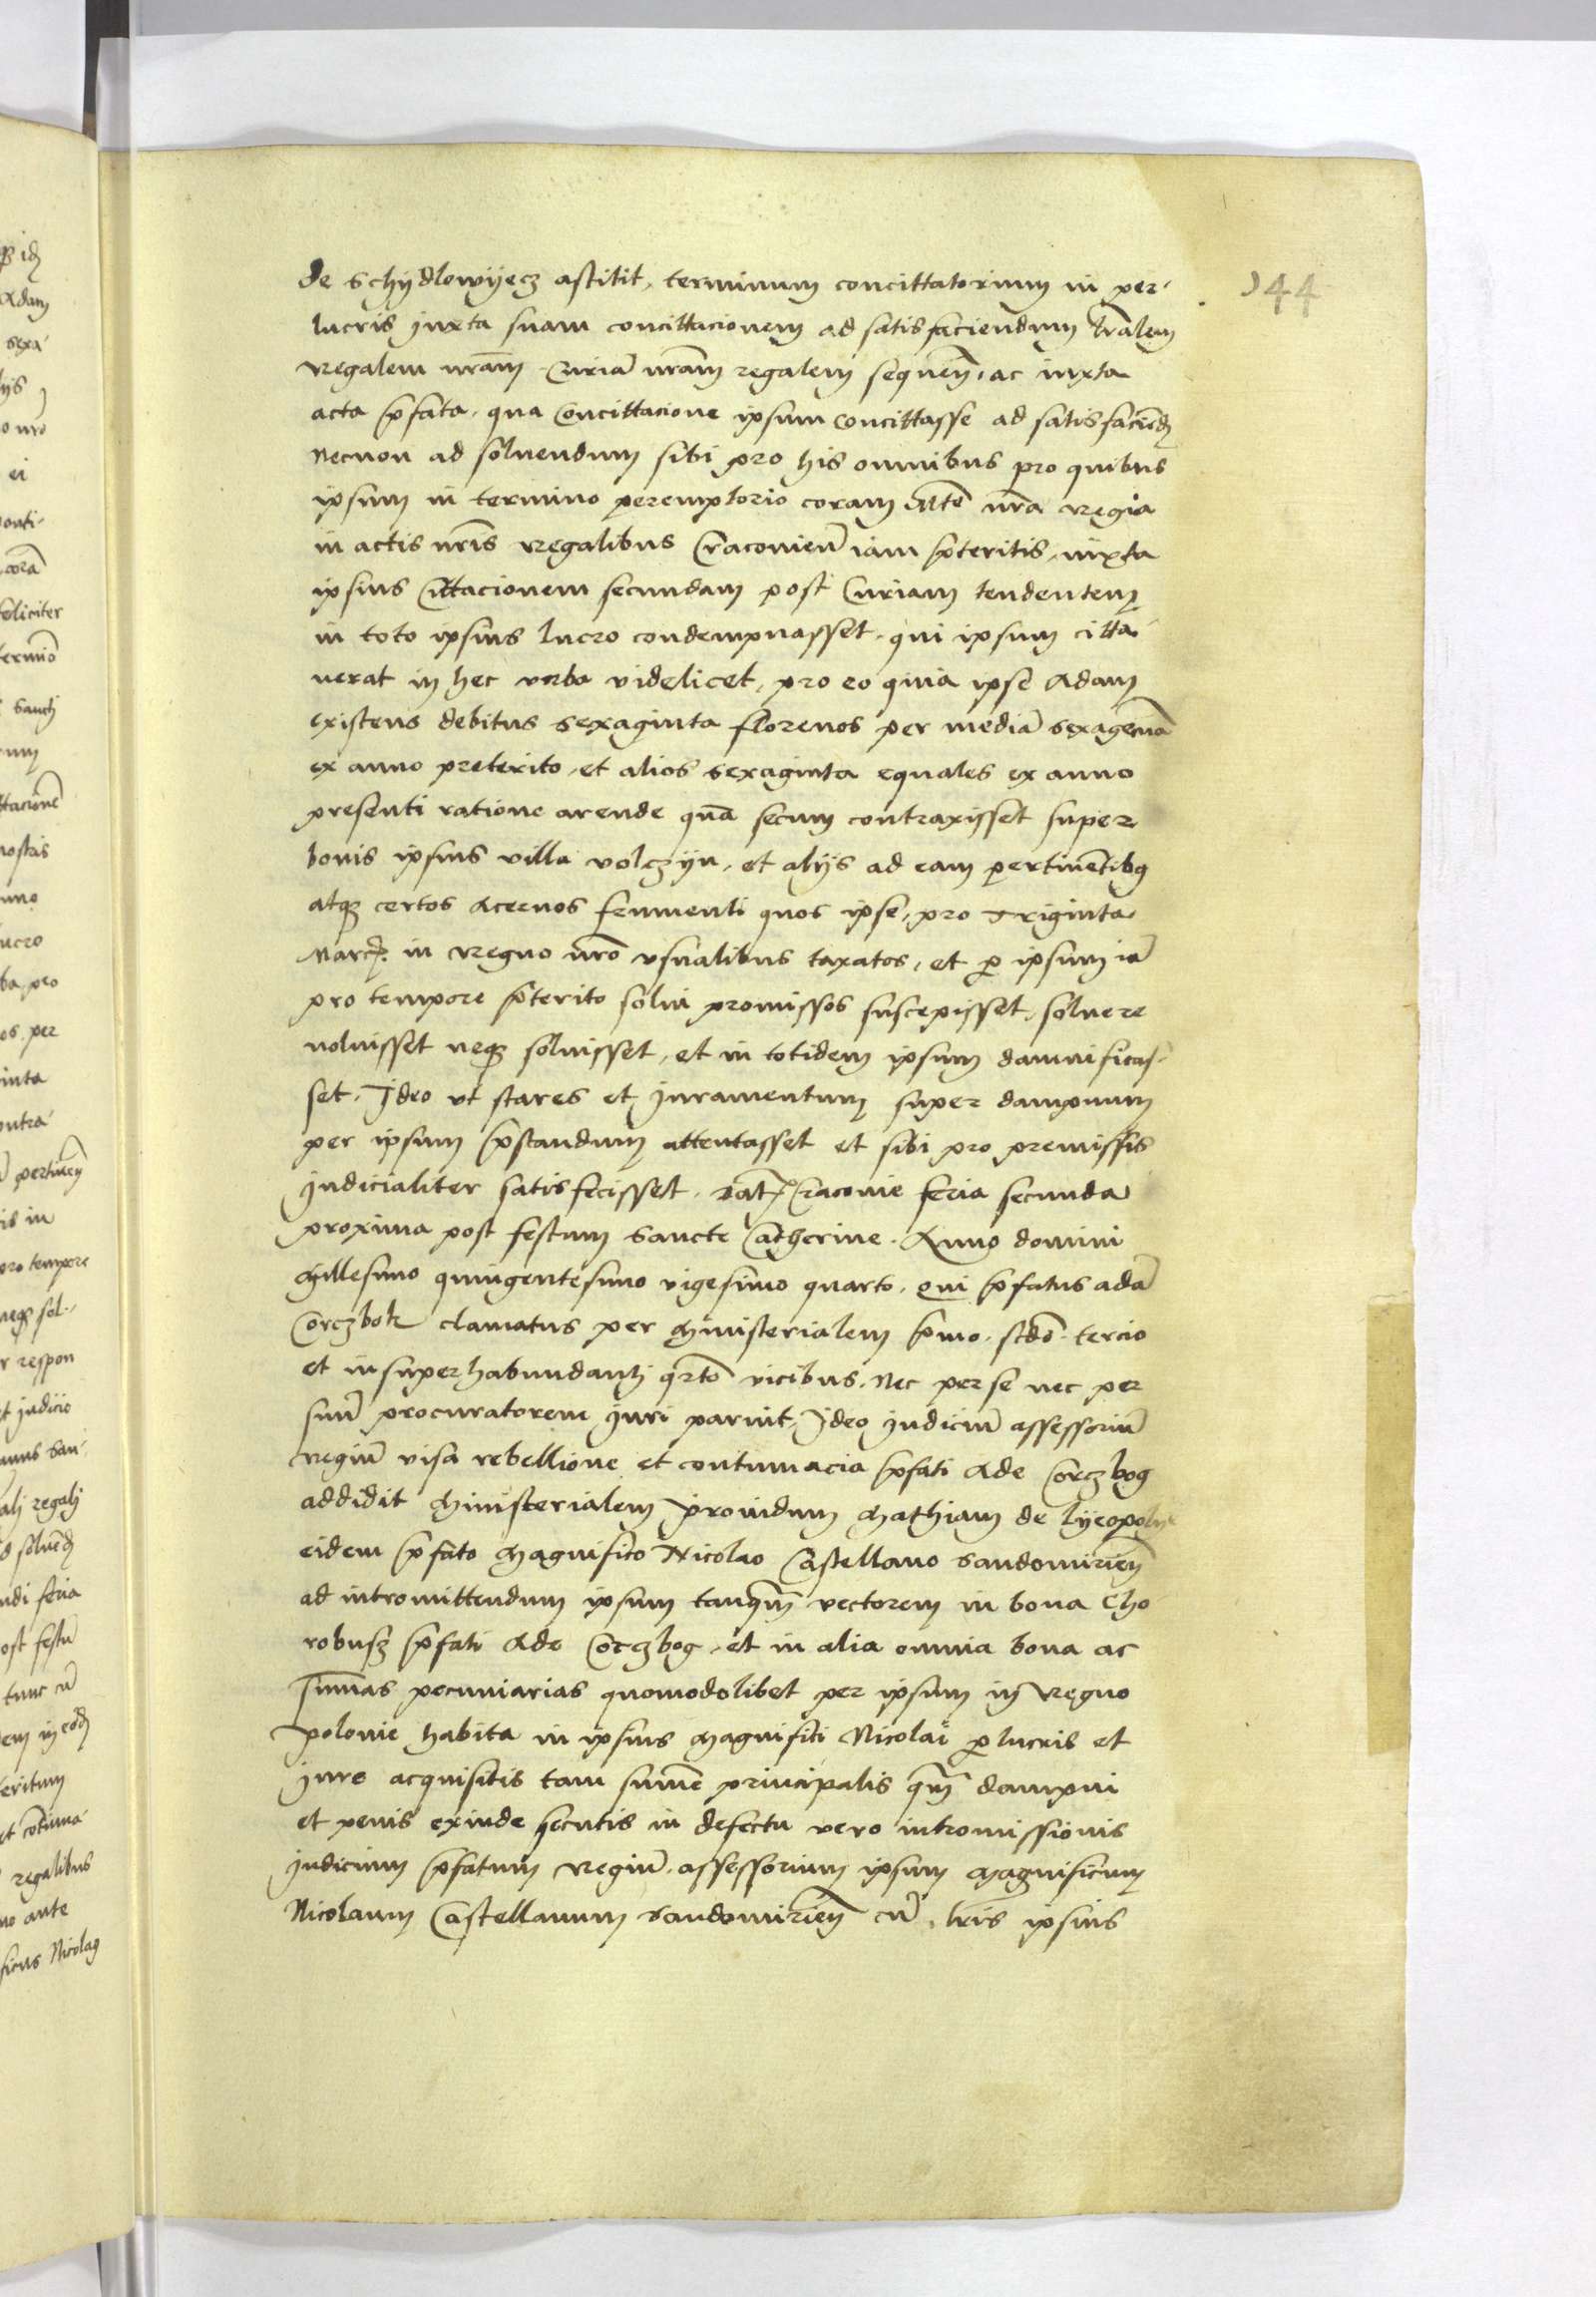 144
de Schydlowyecz astitit, terminum concittatorium in per-
lucris juxta suam concittacionem ad satisfaciendum lrālem
regalem nrām Curiā nrām regalem sequeñ, ac iuxta
acta p̄fata, qua Concittacione ipsum concittasse ad satisfaciend̄
Necnon ad soluendum sibi pro his omnibus pro quibus
ipsum in termino peremptorio coram Mte nrā regia
in actis nrīs regalibus Cracovieñ iam p̄teritis, iuxta
ipsius Cittacionem secundam post Curiam tendentem
in toto ipsius lucro condempnasset, qui ipsum citta
uerat in hec verba videlicet, pro eo quia ipse Adam
existens debitus sexaginta florenos per mediā sexagenā
ex anno preterito, et alios sexaginta equales ex anno
presenti ratione arende quā secum contraxisset super
bonis ipsius villa volczyn, et alijs ad eam pertinētibꝫ
atqꝫ certos Aceruos frumenti quos ipse, pro Triginta
Marcꝭ in regno nrō vsualibus taxatos, et ꝑ ipsum iā
pro tempore p̄terito solui promissos suscepisset, soluere
noluisset neqꝫ soluisset, et in totidem ipsum damnificas-
set, Ideo vt stares et juramentum super dampnum
per ipsum p̄standum attentasset et sibi pro premissis
judicialiter satisfecisset. Datꝭ Cracovie feria secunda
proxima post festum sancte Catherine. Anno domini
Millesimo quingentesimo vigesimo quarto. Qui p̄fatus adā
Corczbok clamatus per Ministerialem p̄mo, scdō, tercio
et insuperhabundanti qrtō vicibus, Nec per se nec per
suū procuratorem juri paruit, Ideo judiciū assessoriū
regiū visa rebellione et contumacia p̄fati Ade Corczbog
addidit Ministerialem prouidum Mathiam de
eidem p̄fato Magnifico Nicolao Castellano Sandomirieñ
ad intromittendum ipsum tanqm̄ rectorem in bona Cho
robusz p̄fati Ade Corczbog, et in alia omnia bona ac
sum̄as pecuniarias quomodolibet per ipsum in regno
polonie habita in ipsius Magnifici Nicolai ꝑlucris et
jure acquisitis tam sum̄e principalis qm̄ dampni
et penis exinde secutis in defectu vero intromissionis
judicium p̄fatum regiū assessorium ipsum Magnificum
Nicolaum Castellanum Sandomirieñ cū lris ipsius